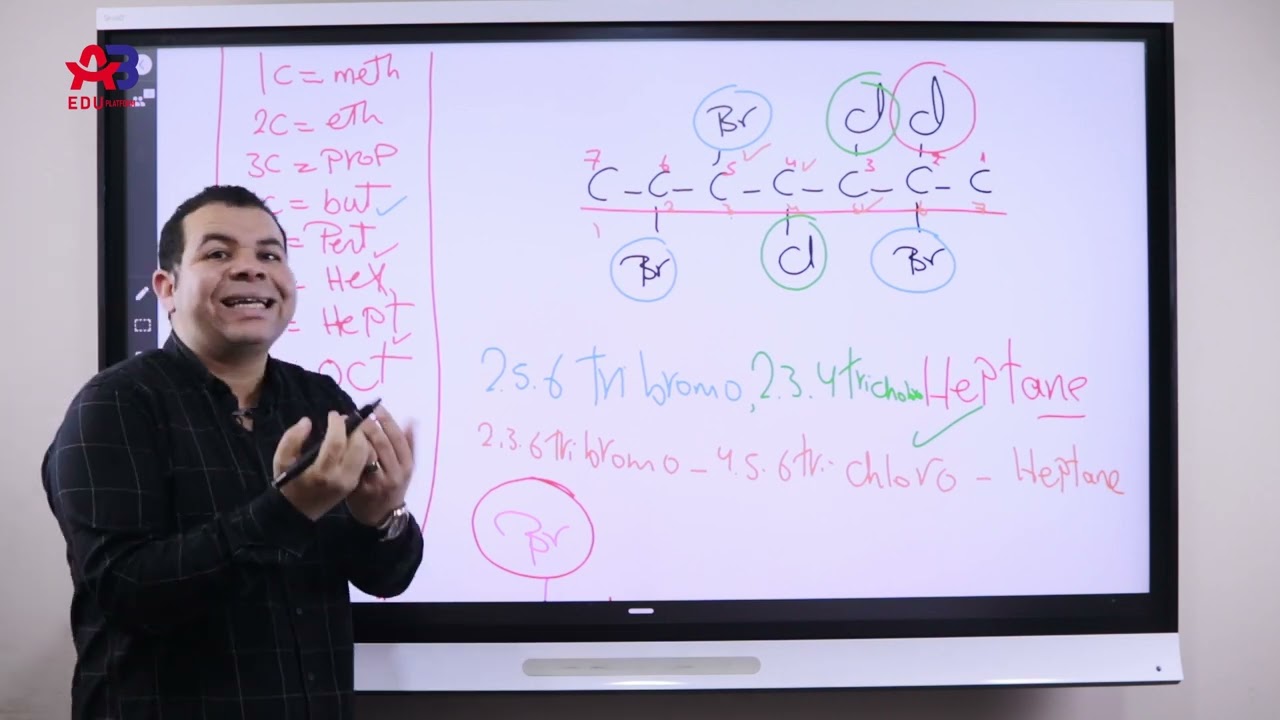 AB
EDU PLATFORM
1C = meth
2C = eth
3C = PROP
C = but ✓
= Pert ✓
= Hex
= Hept ✓
OCT
Br Cl Cl
7 6 5 ✓ 4 ✓ 3 2 1
C - C - C - C - C - C - C
1 2 3 4 ✓ 6 7
Br Cl Br
2.5.6 tri bromo, 2.3.4 tricholoro Heptane
2.3.6 tri bromo - 4.5.6 tri. chloro - Heptane
Br